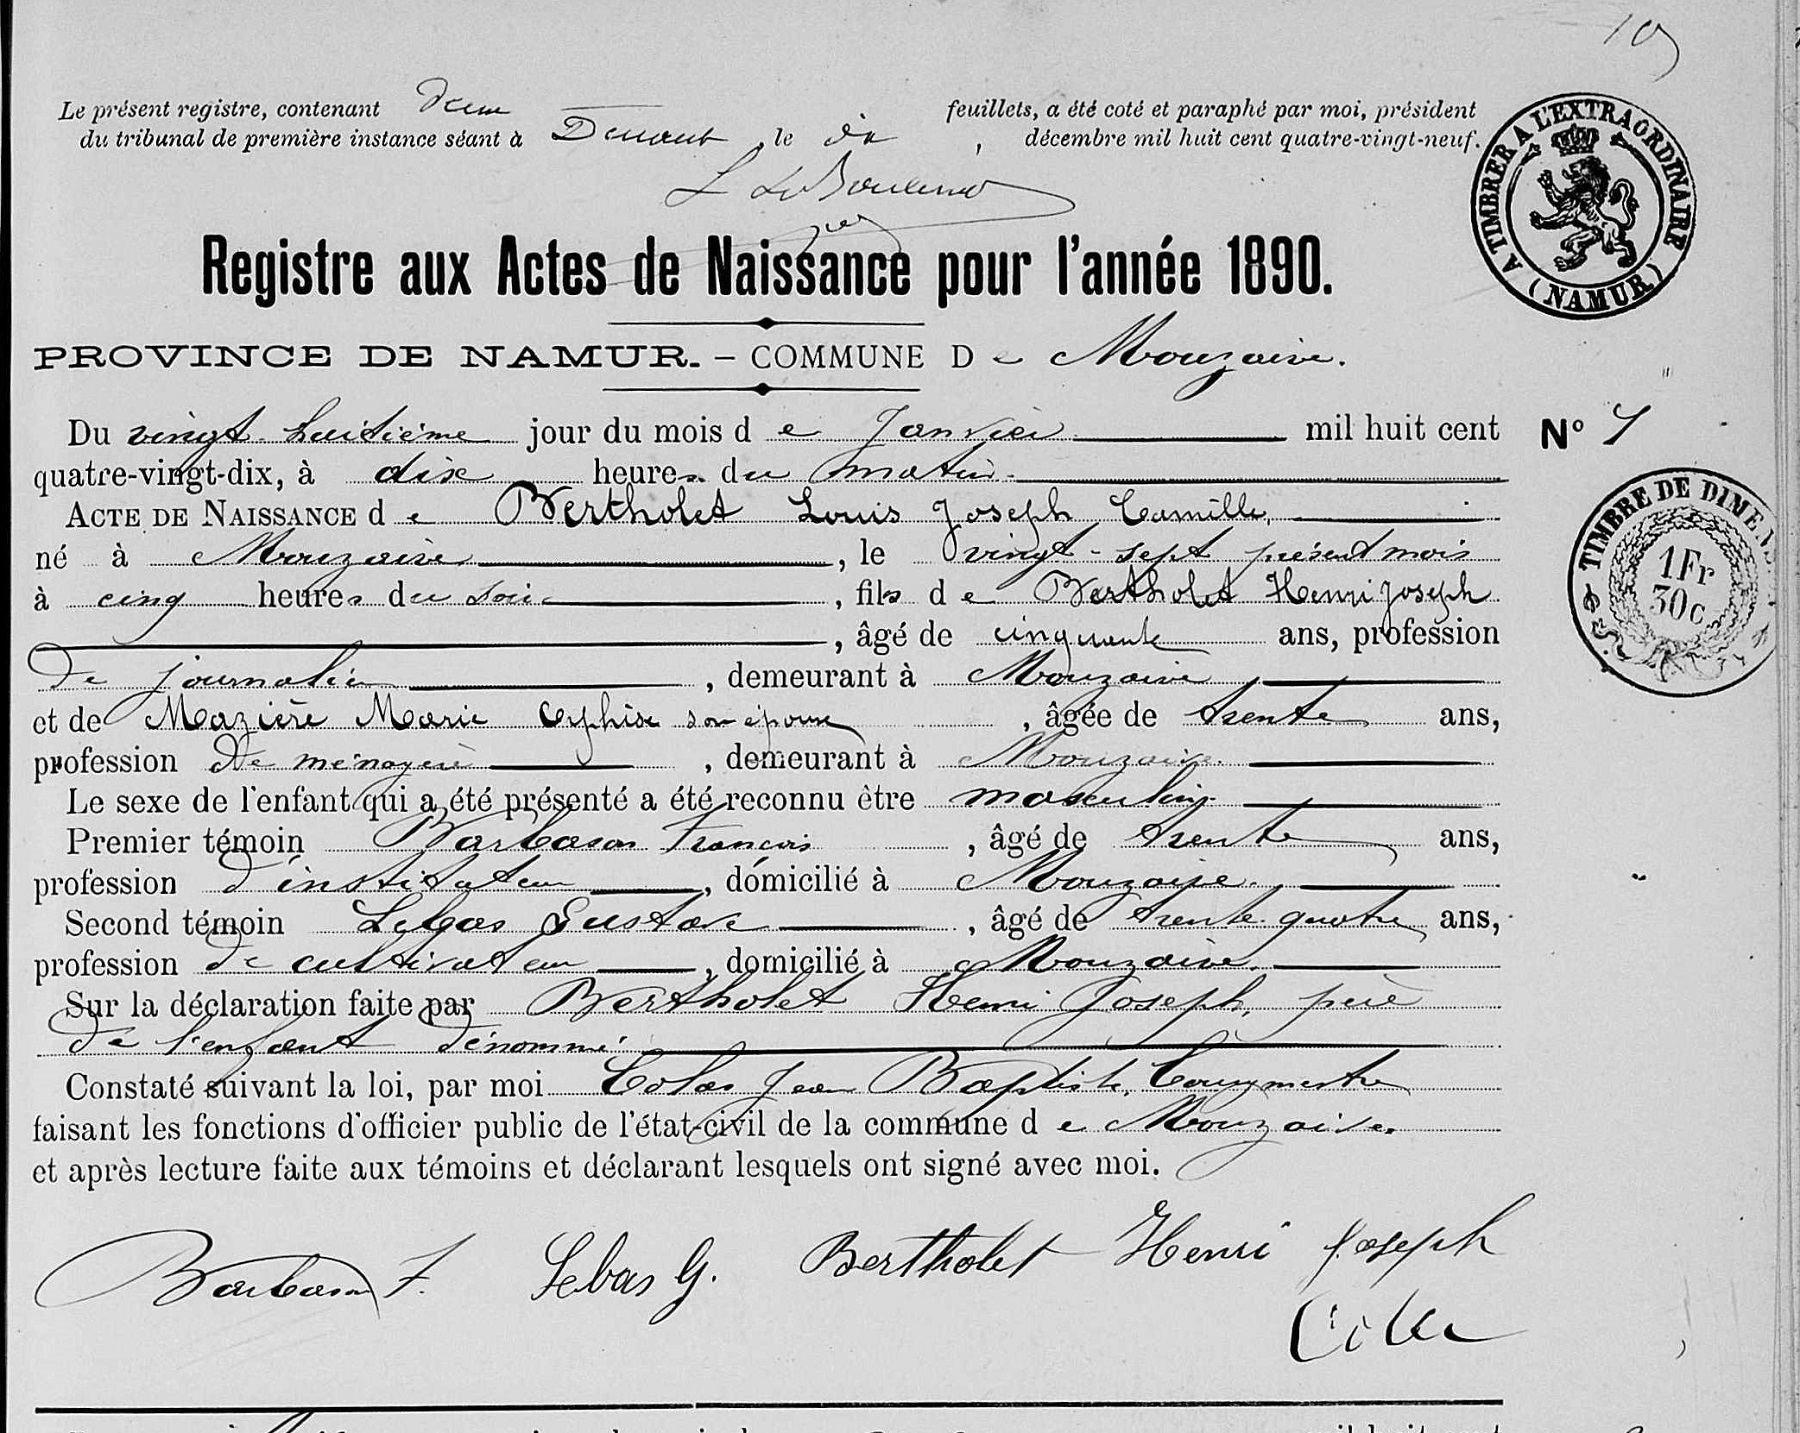 Le présent registre, contenant deux feuillets, a été coté et paraphé par moi, président
du tribunal de première instance séant à Dinant, le dix décembre mil huit cent quatre-vingt-neuf.
A TIMBRER A L'EXTRAORDINAIRE (NAMUR)
Registre aux Actes de Naissance pour l'année 1890.
PROVINCE DE NAMUR. – COMMUNE De Mouzaive.
Du vingt-huitième jour du mois de Janvier mil huit cent
N° 1
quatre-vingt-dix, à dix heures du matin.
ACTE DE NAISSANCE de Bertholet Louis Joseph Camille,
né à Mouzaive, le vingt-sept présent mois
à cinq heures du soir, fils de Bertholet Henri Joseph
, âgé de cinquante ans, profession
de journalier, demeurant à Mouzaive
et de Mazière Marie Cephise son épouse, âgée de trente ans,
profession de ménagère, demeurant à Mouzaive.
Le sexe de l'enfant qui a été présenté a été reconnu être masculin.
Premier témoin Barbason François, âgé de trente ans,
profession d'instituteur, domicilié à Mouzaive.
Second témoin Lebas Gustave, âgé de trente-quatre ans,
profession de cultivateur, domicilié à Mouzaive.
Sur la déclaration faite par Bertholet Henri Joseph, père
de l'enfant dénommé
Constaté suivant la loi, par moi Colas Jean Baptiste, bourgmestre
faisant les fonctions d'officier public de l'état-civil de la commune de Mouzaive.
et après lecture faite aux témoins et déclarant lesquels ont signé avec moi.
TIMBRE DE DIMEN
1Fr
30c
Barbason F. Lebas G. Bertholet Henri Joseph